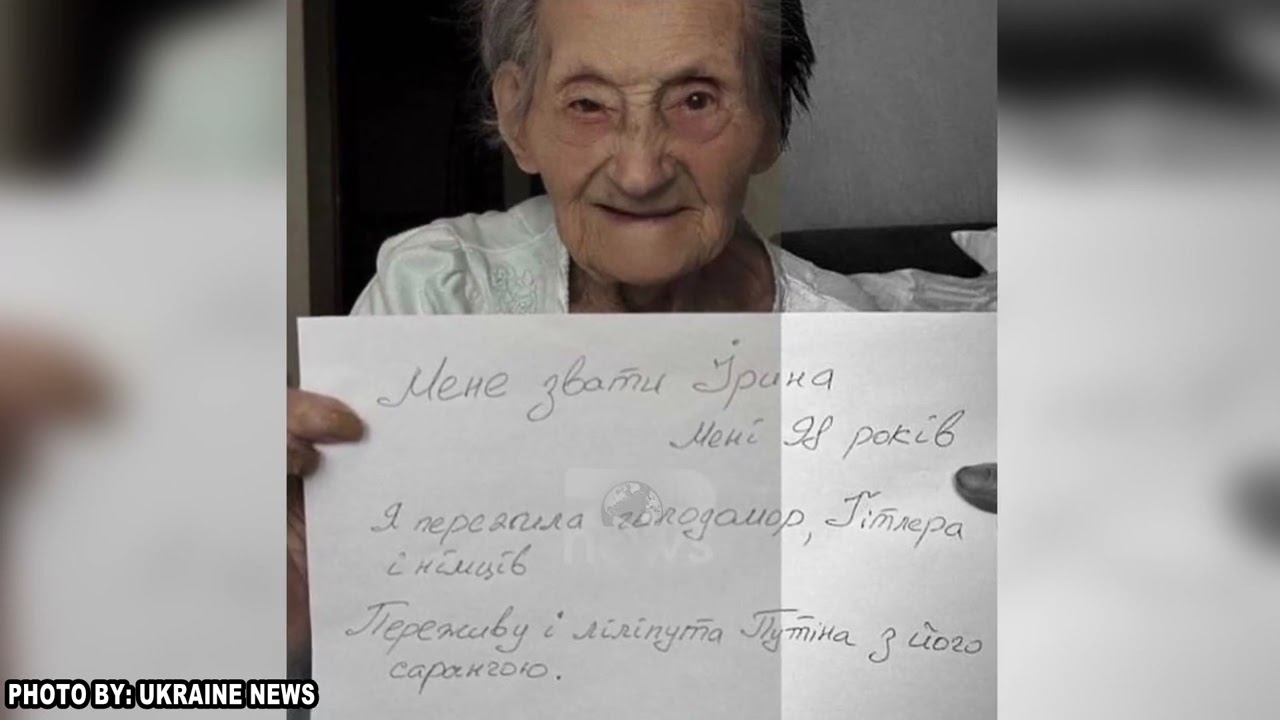 Мене звати Ірина
Мені 98 років
Я пережила голодомор, Гітлера
і німців
Переживу і ліліпута Путіна з його
сарангою.
news
PHOTO BY: UKRAINE NEWS